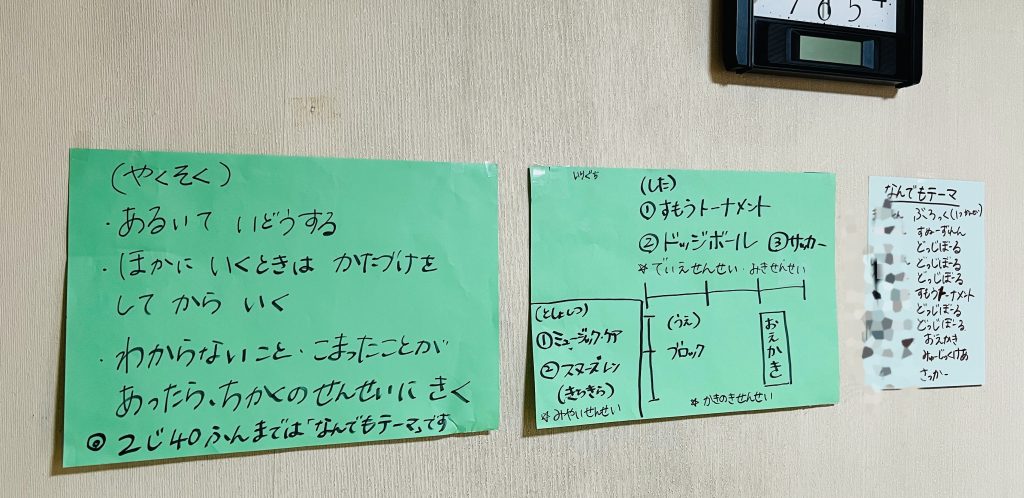 (やくそく)
・あるいて いどうする
・ほかに いくときは かたづけを
して から いく
・わからないこと・こまったことが
あったら、ちかくのせんせいに きく
◎ 2じ40ふんまでは「なんでもテーマ」です
いりぐち
(した)
① すもうトーナメント
② ドッジボール ③ サッカー
☆でいえせんせい・みきせんせい
(としょしつ)
① ミュージック・ケア
② スヌーズレン
(きらきら)
☆みやいせんせい
(うえ)
ブロック
おえかき
☆かきのきせんせい
なんでもテーマ
ぶろっく
すぬーずれん
どっじぼーる
どっじぼーる
どっじぼーる
すもうトーナメント
どっじぼーる
どっじぼーる
おえかき
みゅーじっくけあ
さっかー
7 6 5 4